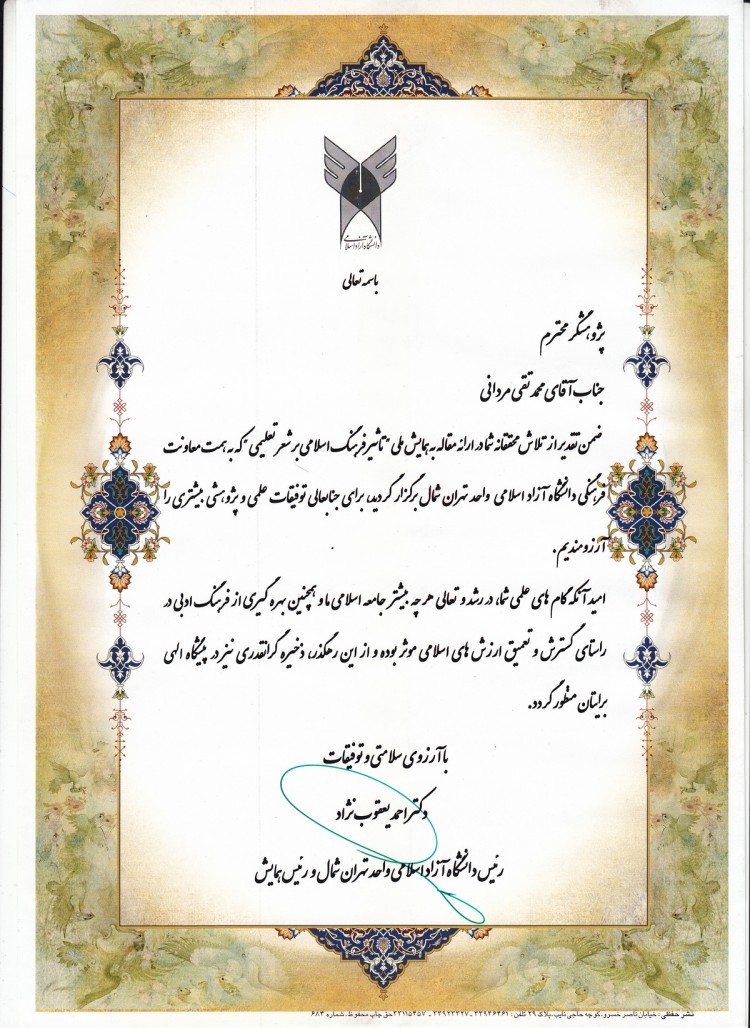 دانشگاه آزاد اسلامی
باسمه تعالی
پژوهشگر محترم
جناب آقای محمد تقی مردانی
ضمن تقدیر از تلاش محققانه شما در ارائه مقاله به همایش ملی "تاثیر فرهنگ اسلامی بر شعر تعلیمی" که به همت معاونت
فرهنگی دانشگاه آزاد اسلامی واحد تهران شمال برگزار گردید، برای جنابعالی توفیقات علمی و پژوهشی بیشتری را
آرزومندیم.
امید آنکه گام های علمی شما، در رشد و تعالی هر چه بیشتر جامعه اسلامی ما و همچنین بهره گیری از فرهنگ ادبی در
راستای گسترش و تعمیق ارزش های اسلامی موثر بوده و از این رهگذر، ذخیره گرانقدری نیز در پیشگاه الهی
برایتان منظور گردد.
با آرزوی سلامتی و توفیقات
دکتر احمد یعقوب نژاد
رئیس دانشگاه آزاد اسلامی واحد تهران شمال و رئیس همایش
نشر حقیقی : خیابان ناصر خسرو، کوچه حاجی نایب، پلاک ۲۹ تلفن : ۳۳۹۳۶۴۶۱ - ۳۳۹۲۳۲۲۷ - ۳۳۱۱۵۴۵۷ حق چاپ محفوظ، شماره ۶۸۴